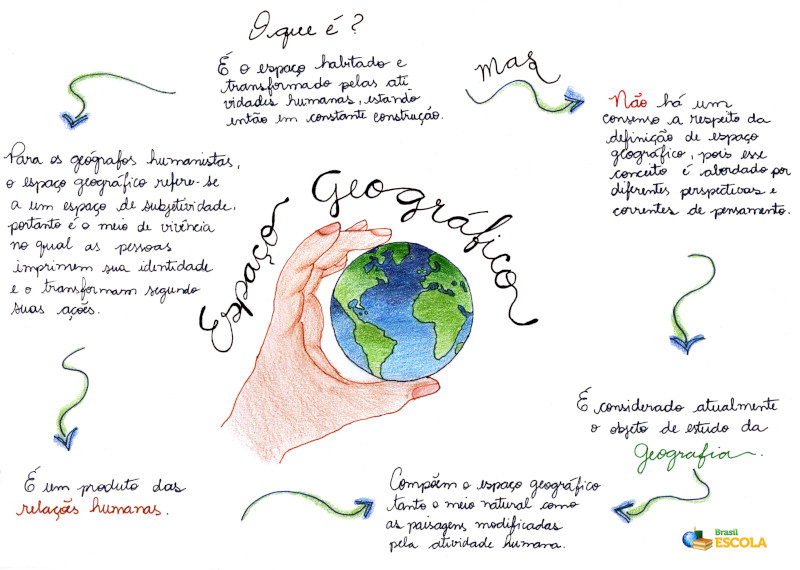 O que é?
É o espaço habitado e
transformado pelas ati
vidades humanas, estando
então em constante construção.
mas
Não há um
consenso a respeito da
definição de espaço
geográfico, pois esse
conceito é abordado por
diferentes perspectivas e
correntes de pensamento.
Para os geógrafos humanistas,
o espaço geográfico refere-se
a um espaço de subjetividade,
portanto é o meio de vivência
no qual as pessoas
imprimem sua identidade
e o transformam segundo
suas ações.
Espaço Geográfico
É considerado atualmente
o objeto de estudo da
Geografia.
É um produto das
relações humanas.
Compõem o espaço geográfico
tanto o meio natural como
as paisagens modificadas
pela atividade humana.
Brasil
ESCOLA